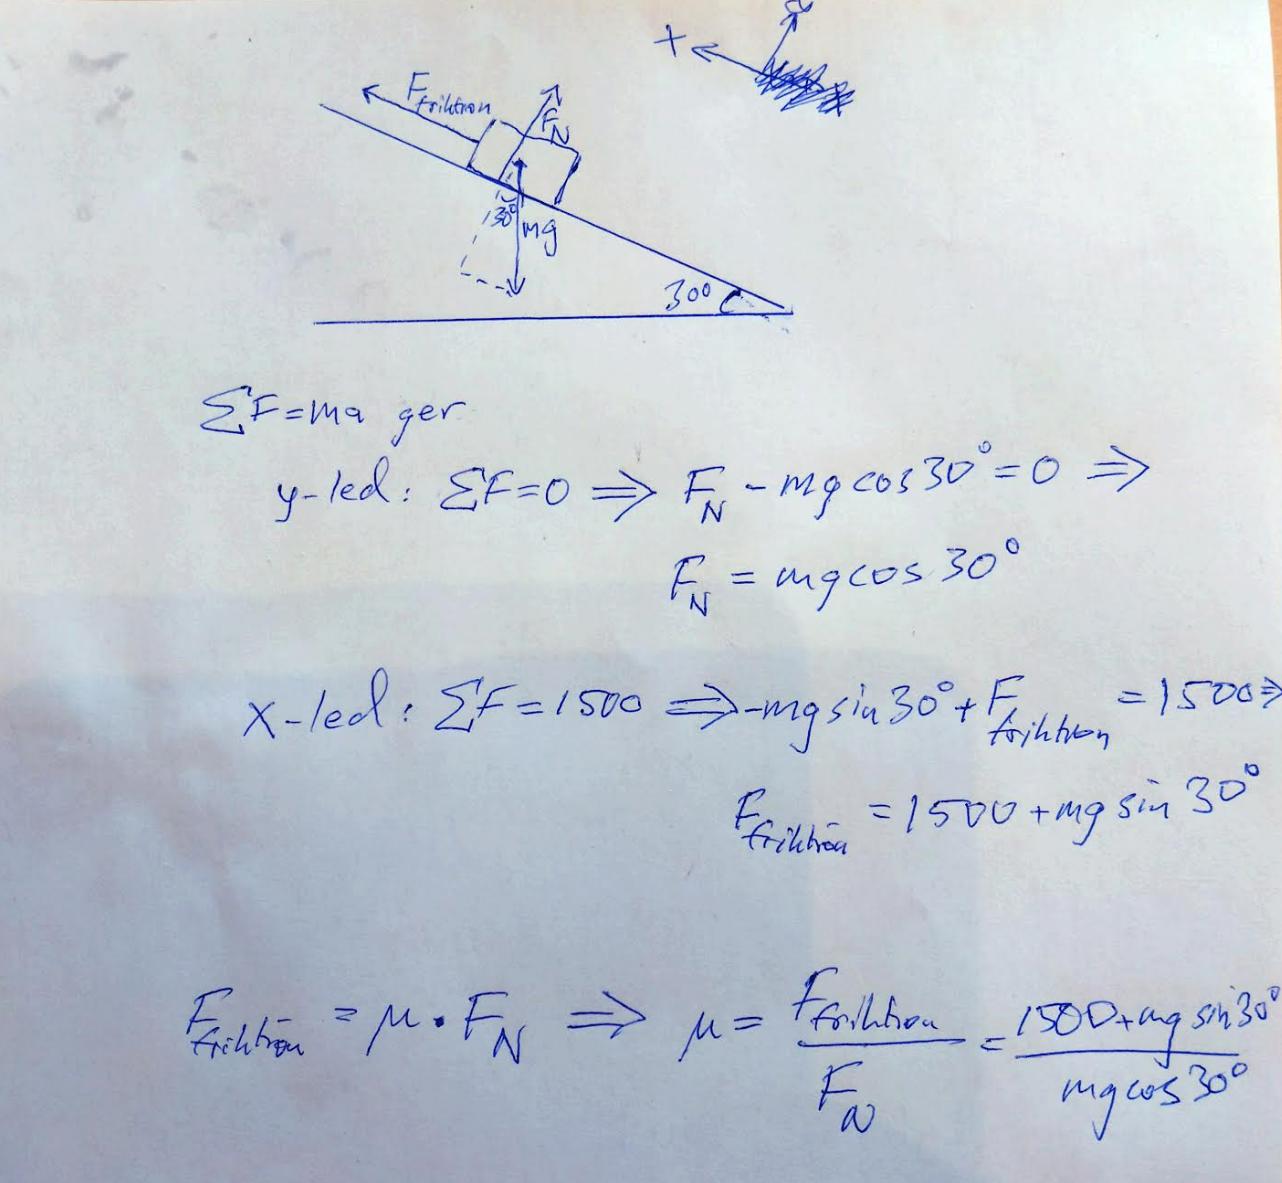 X
F friktion
F_N
30°
mg
30°
ΣF=ma ger
y-led: ΣF=0 ⇒ F_N - mg cos 30° = 0 ⇒
F_N = mg cos 30°
X-led: ΣF=1500 ⇒ -mg sin 30° + F_friktion = 1500 ⇒
F_friktion = 1500 + mg sin 30°
F_friktion = μ · F_N ⇒ μ = F_friktion / F_N = (1500 + mg sin 30°) / (mg cos 30°)